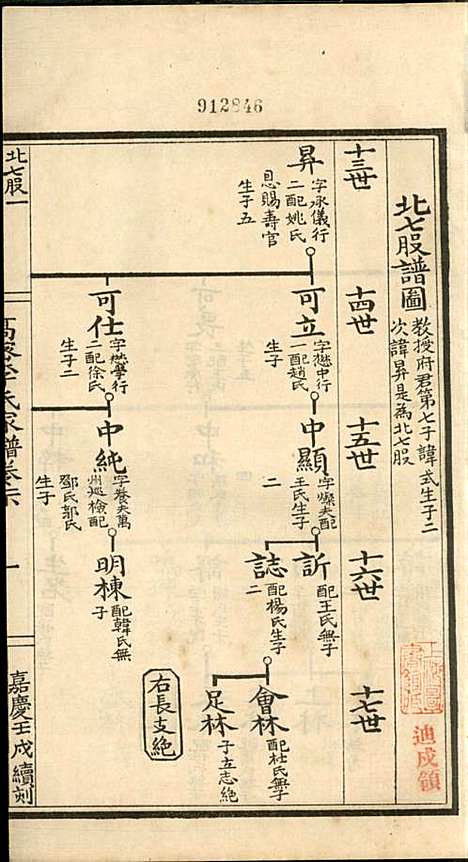 912846
北七股譜圖
教授府君第七子諱式生子二
次諱昇是為北七股
十三世
十四世
十五世
十六世
十七世
昇
字承儀行
二配姚氏
恩賜壽官
生子五
可立
字懋中行
一配趙氏
生子
中顯
字燦夫配
王氏生子
二
訢
配王氏無
子
誌
配楊氏生子
二
會林
配杜氏無子
足林
子立志絶
右長支絶
可仕
字懋學行
二配徐氏
生子二
中純
字養夫萬
州巡檢配
鄒氏郭氏
生子
明棟
配韓氏無
子
北七股一
氏家譜卷六
一
嘉慶壬戌續刻
迪成領